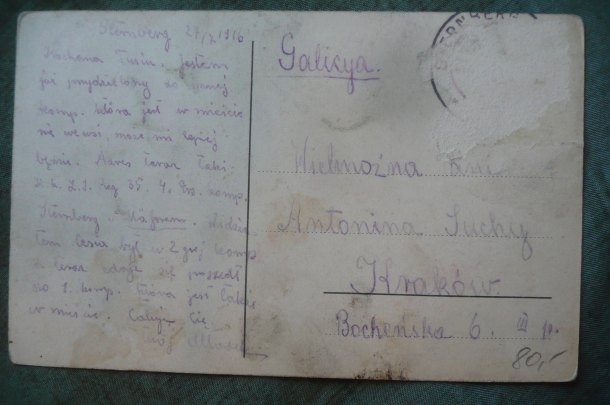 Sternberg 27/X 1916
Kochana Łusiu, jestem
już przydzielony do innej
komp. która jest w mieście
nie we wsi, może mi lepiej
będzie. Adres teraz taki
K. k. L. I. Reg 35, 4. komp.
Sternberg Mähren.
tem Lesia był w 2 giej komp
a teraz zdaje się przeszedł
do 1. komp. która jest także
w mieście. Całuję Cię
Galicya.
Wielmożna Pani
Antonina Suchy
Kraków.
Bocheńska 6. III p.
80,-